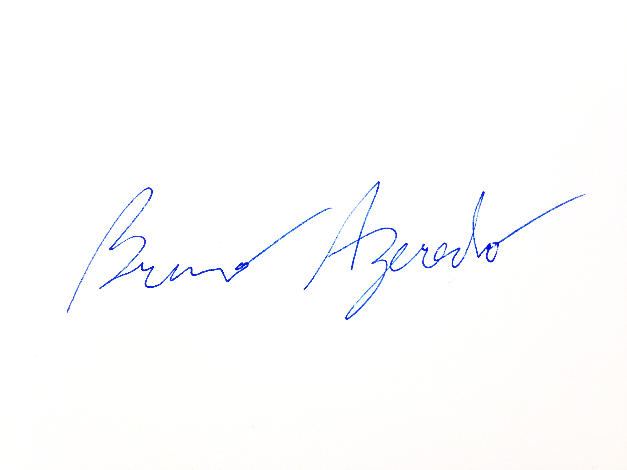 Bruno Azeredo